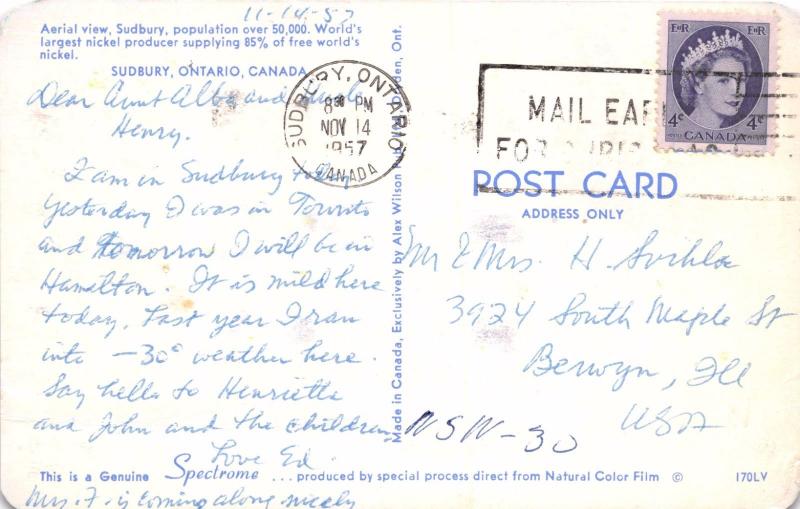 11-14-57
Aerial view, Sudbury, population over 50,000. World's
largest nickel producer supplying 85% of free world's
nickel.
SUDBURY, ONTARIO, CANADA
Dear Aunt Alba and Uncle
Henry.
I am in Sudbury today
yesterday I was in Toronto
and tomorrow I will be in
Hamilton. It is mild here
today. Last year I ran
into -30° weather here.
Say hello to Henrietta
and John and the children
Love Ed.
This is a Genuine Spectrome ...produced by special process direct from Natural Color Film ©
Mrs. F. is coming along nicely
Made in Canada, Exclusively by Alex Wilson Ont.
SUDBURY, ONTARIO
8 30 PM
NOV 14
1957
CANADA
MAIL EAR
FOR
EIIR EIIR
4¢ 4¢
CANADA
POST CARD
ADDRESS ONLY
Mr & Mrs. H. Svihla
3924 South Maple St
Berwyn, Ill
USA
NSW-30
170LV